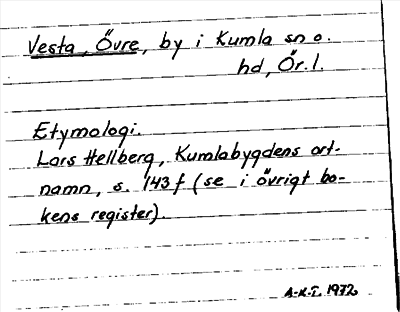 Vesta, Övre, by i Kumla sn o.
hd, Ör. l.
Etymologi.
Lars Hellberg, Kumlabygdens ort-
namn, s. 143 f (se i övrigt bo-
kens register).
A-K.T. 1972